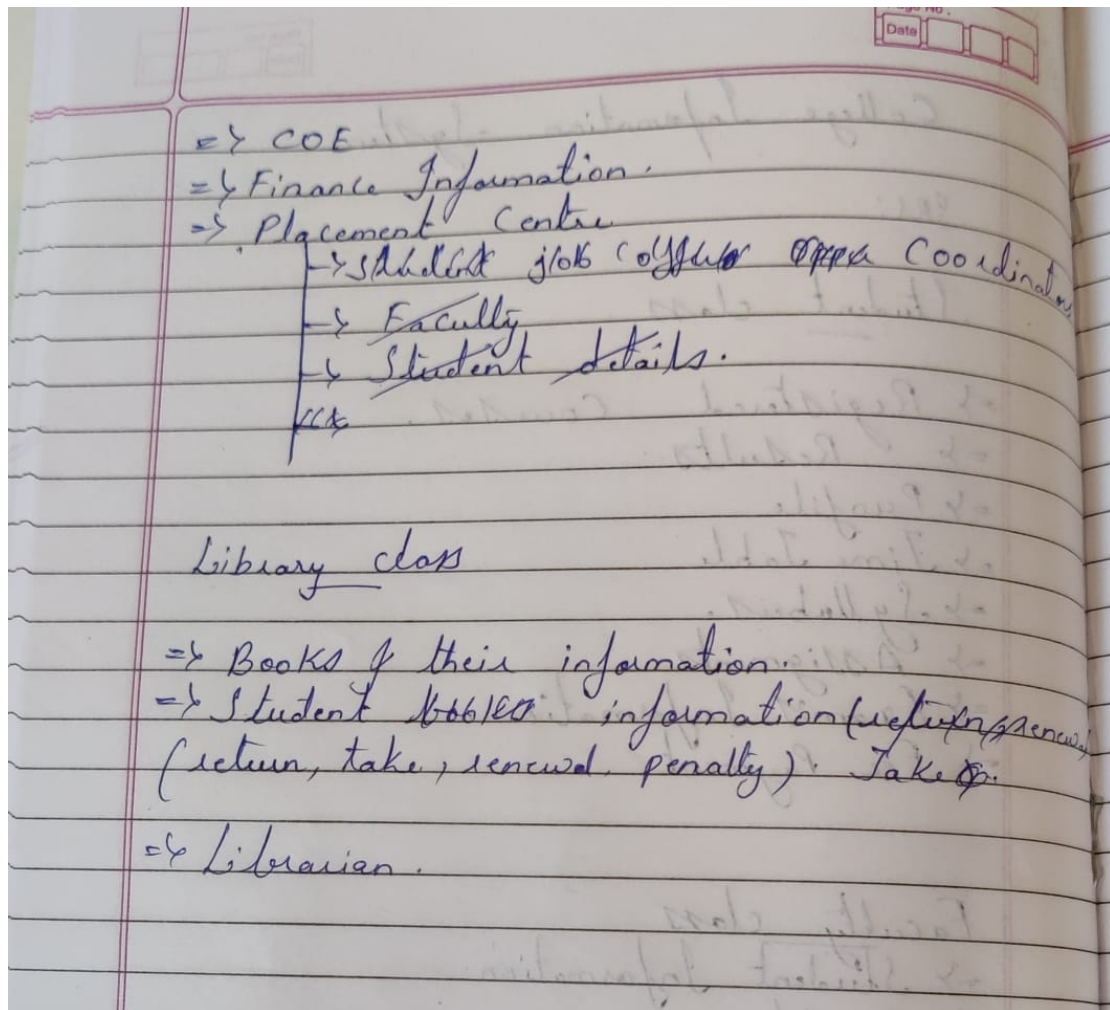 Page No.
Date
=> COE
=> Finance Information.
=> Placement Centre
-> student job Coordinator
-> Faculty
-> Student details.
Library class
=> Books & their information.
=> Student information (return, renewal,
(return, take, renewal, penalty). Take
=> Librarian.